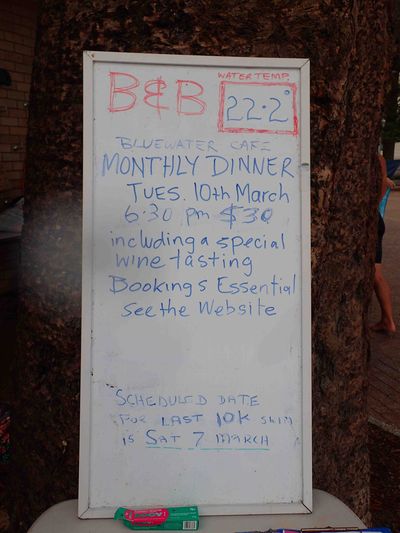 B&B
WATER TEMP.
22.2°
BLUEWATER CAFE
MONTHLY DINNER
TUES. 10th March
6:30 pm $30
including a special
wine tasting
Bookings Essential
see the Website
SCHEDULED DATE
FOR LAST 10K SWIM
IS SAT 7 MARCH